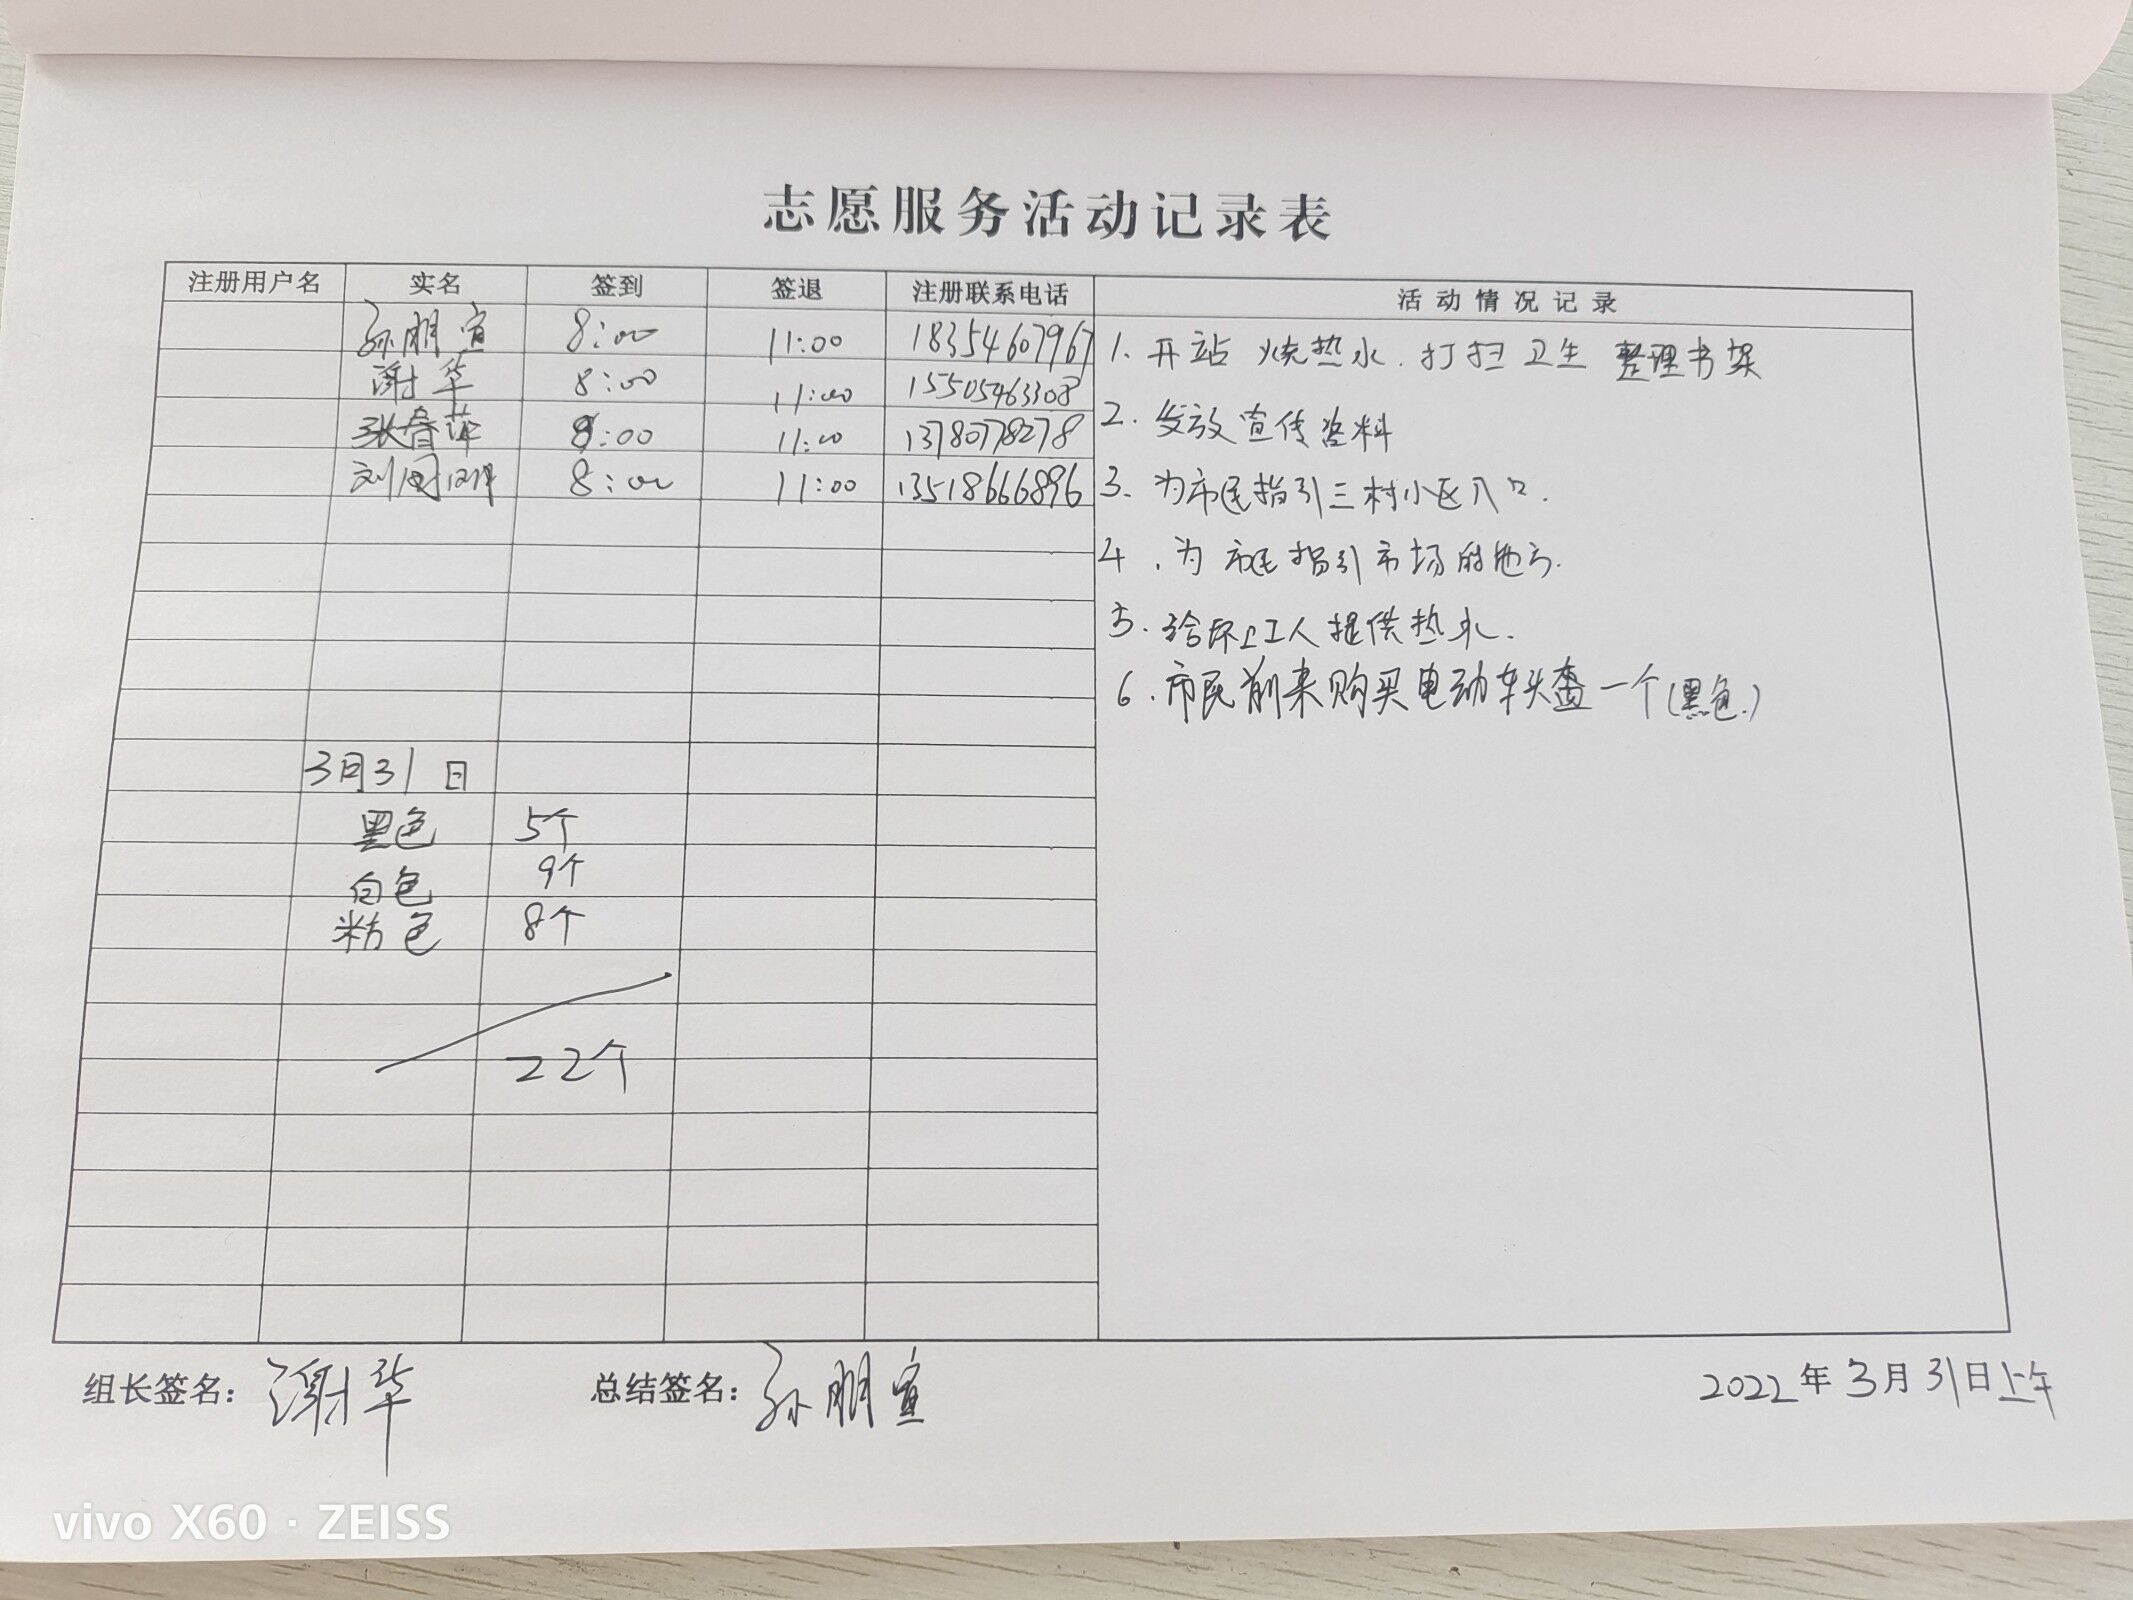 志愿服务活动记录表
注册用户名 实名 签到 签退 注册联系电话 活动情况记录
孙朋宣 8:00 11:00 18354607967
谢华 8:00 11:00 15505463308
张春萍 8:00 11:00 13780778278
刘 8:00 11:00 13518666896
1. 开站 烧热水. 打扫卫生 整理书架
2. 发放宣传资料
3. 为市民指引三村小区入口.
4. 为市民指引市场的地方.
5. 给环卫工人提供热水.
6. 市民前来购买电动车头盔一个(黑色.)
3月31日
黑色 5个
白色 9个
粉色 8个
22个
组长签名: 谢华 总结签名: 孙朋宣 2022年3月31日上午
vivo X60 · ZEISS